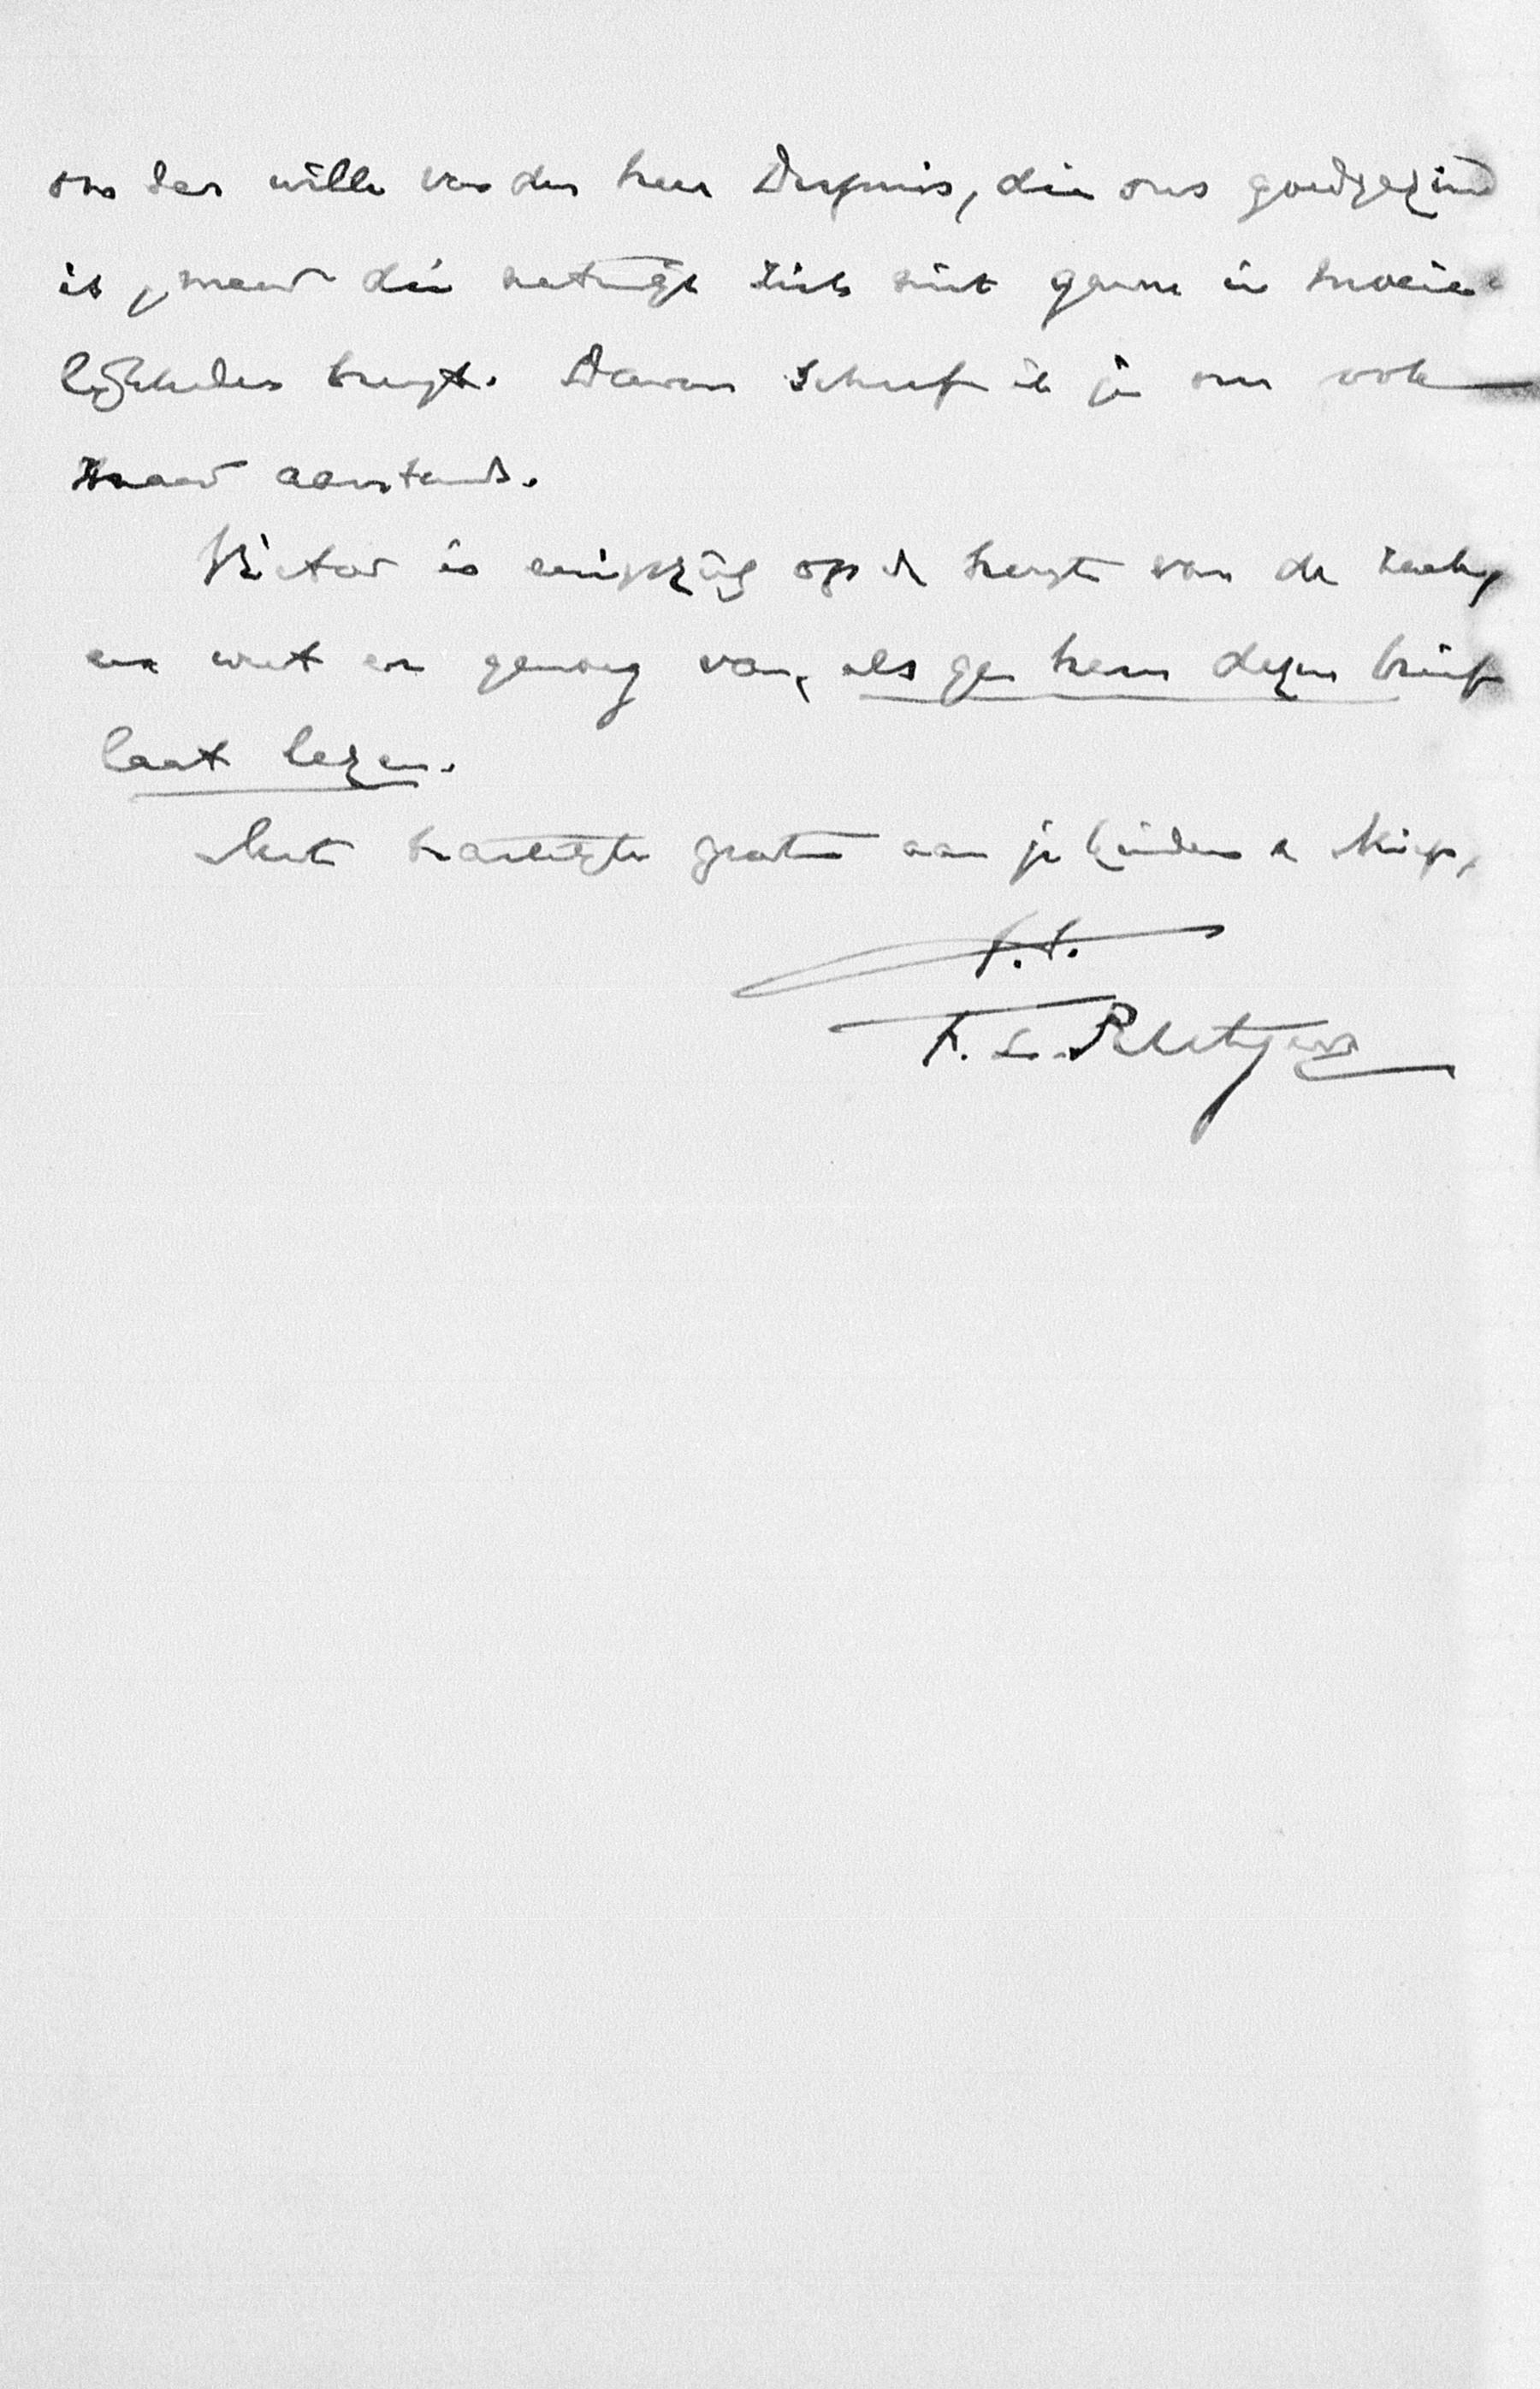 om der wille van den heer Dupuis, die ons goedgezind
is, maar die natuurlijk zich niet gaarne in moeie-
lijkheden brengt. Daarom schreef ik je om ook
maar aanstonds.
Victor is eenigszins op de hoogte van de zaak,
en weet er genoeg van, als ge hem dezen brief
laat lezen.
Met hartelijke groeten aan je kinders & Miep,
t.t.
F. L. Rutgers